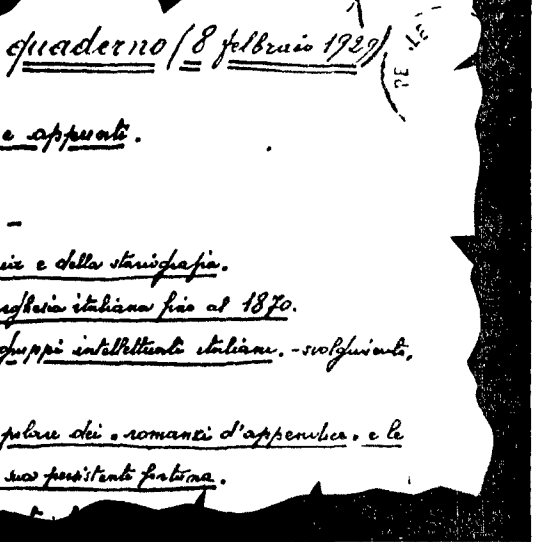 quaderno (8 febbraio 1929)
e appunti.
–
ria e della storiografia.
rghesia italiana fino al 1870.
gruppi intellettuali italiani. - svolgimento,
polare dei "romanzi d'appendice" e le
sua persistente fortuna.